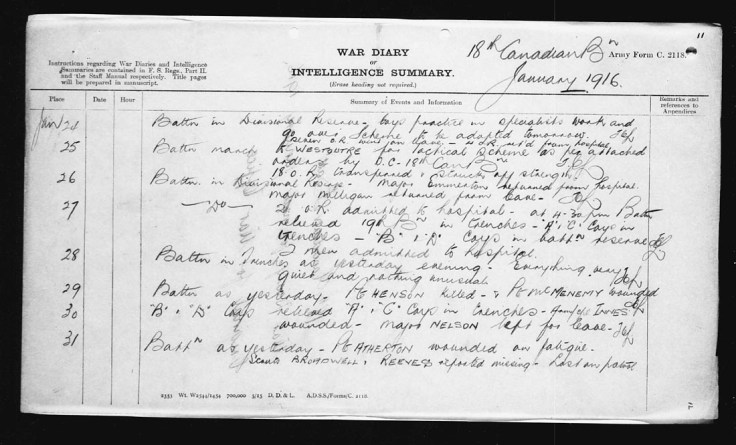 11
WAR DIARY
OR
INTELLIGENCE SUMMARY.
(Erase heading not required.)
18th Canadian Bn
Army Form C. 2118.
January 1916.
Instructions regarding War Diaries and Intelligence
Summaries are contained in F. S. Regs., Part II.
and the Staff Manual respectively. Title pages
will be prepared in manuscript.
Place
Date
Hour
Summary of Events and Information
Remarks and
references to
Appendices
Jan 24 Battn in Divisional Reserve - Coys practice in specialists work and
go over scheme to be adopted tomorrow.
Seven O.R. went on leave - 4 O.R. ret'd from hospital
25 Battn march to WESTOUTRE for Tactical Scheme as per attached
orders by O.C. 18th Can Bn
18 O.R. transferred & struck off strength.
26 Battn. in Divisional Reserve - Major Emmerton returned from hospital.
Major Milligan returned from leave -
27 - Do - 2 O.R. admitted to hospital - at 4-30 pm Battn
relieved 19th Bn in trenches - "A" & "C" Coys in
trenches - "B" & "D" Coys in battn reserve
2 men admitted to hospital.
28 Battn in Trenches as yesterday evening. Everything very
quiet and nothing unusual
29 Battn as yesterday - Pte HENSON killed - & Pte McMENEMY wounded
30 "B" & "D" Coys relieved "A" & "C" Coys in trenches - INNES
wounded - Major NELSON left for leave -
31 Battn as yesterday - Pte ATHERTON wounded on fatigue.
Scouts BROADWELL & REEVES reported missing - Lost on patrol
2353 Wt. W2544/1454 700,000 5/15 D. D. & L. A.D.S.S./Forms/C. 2118.